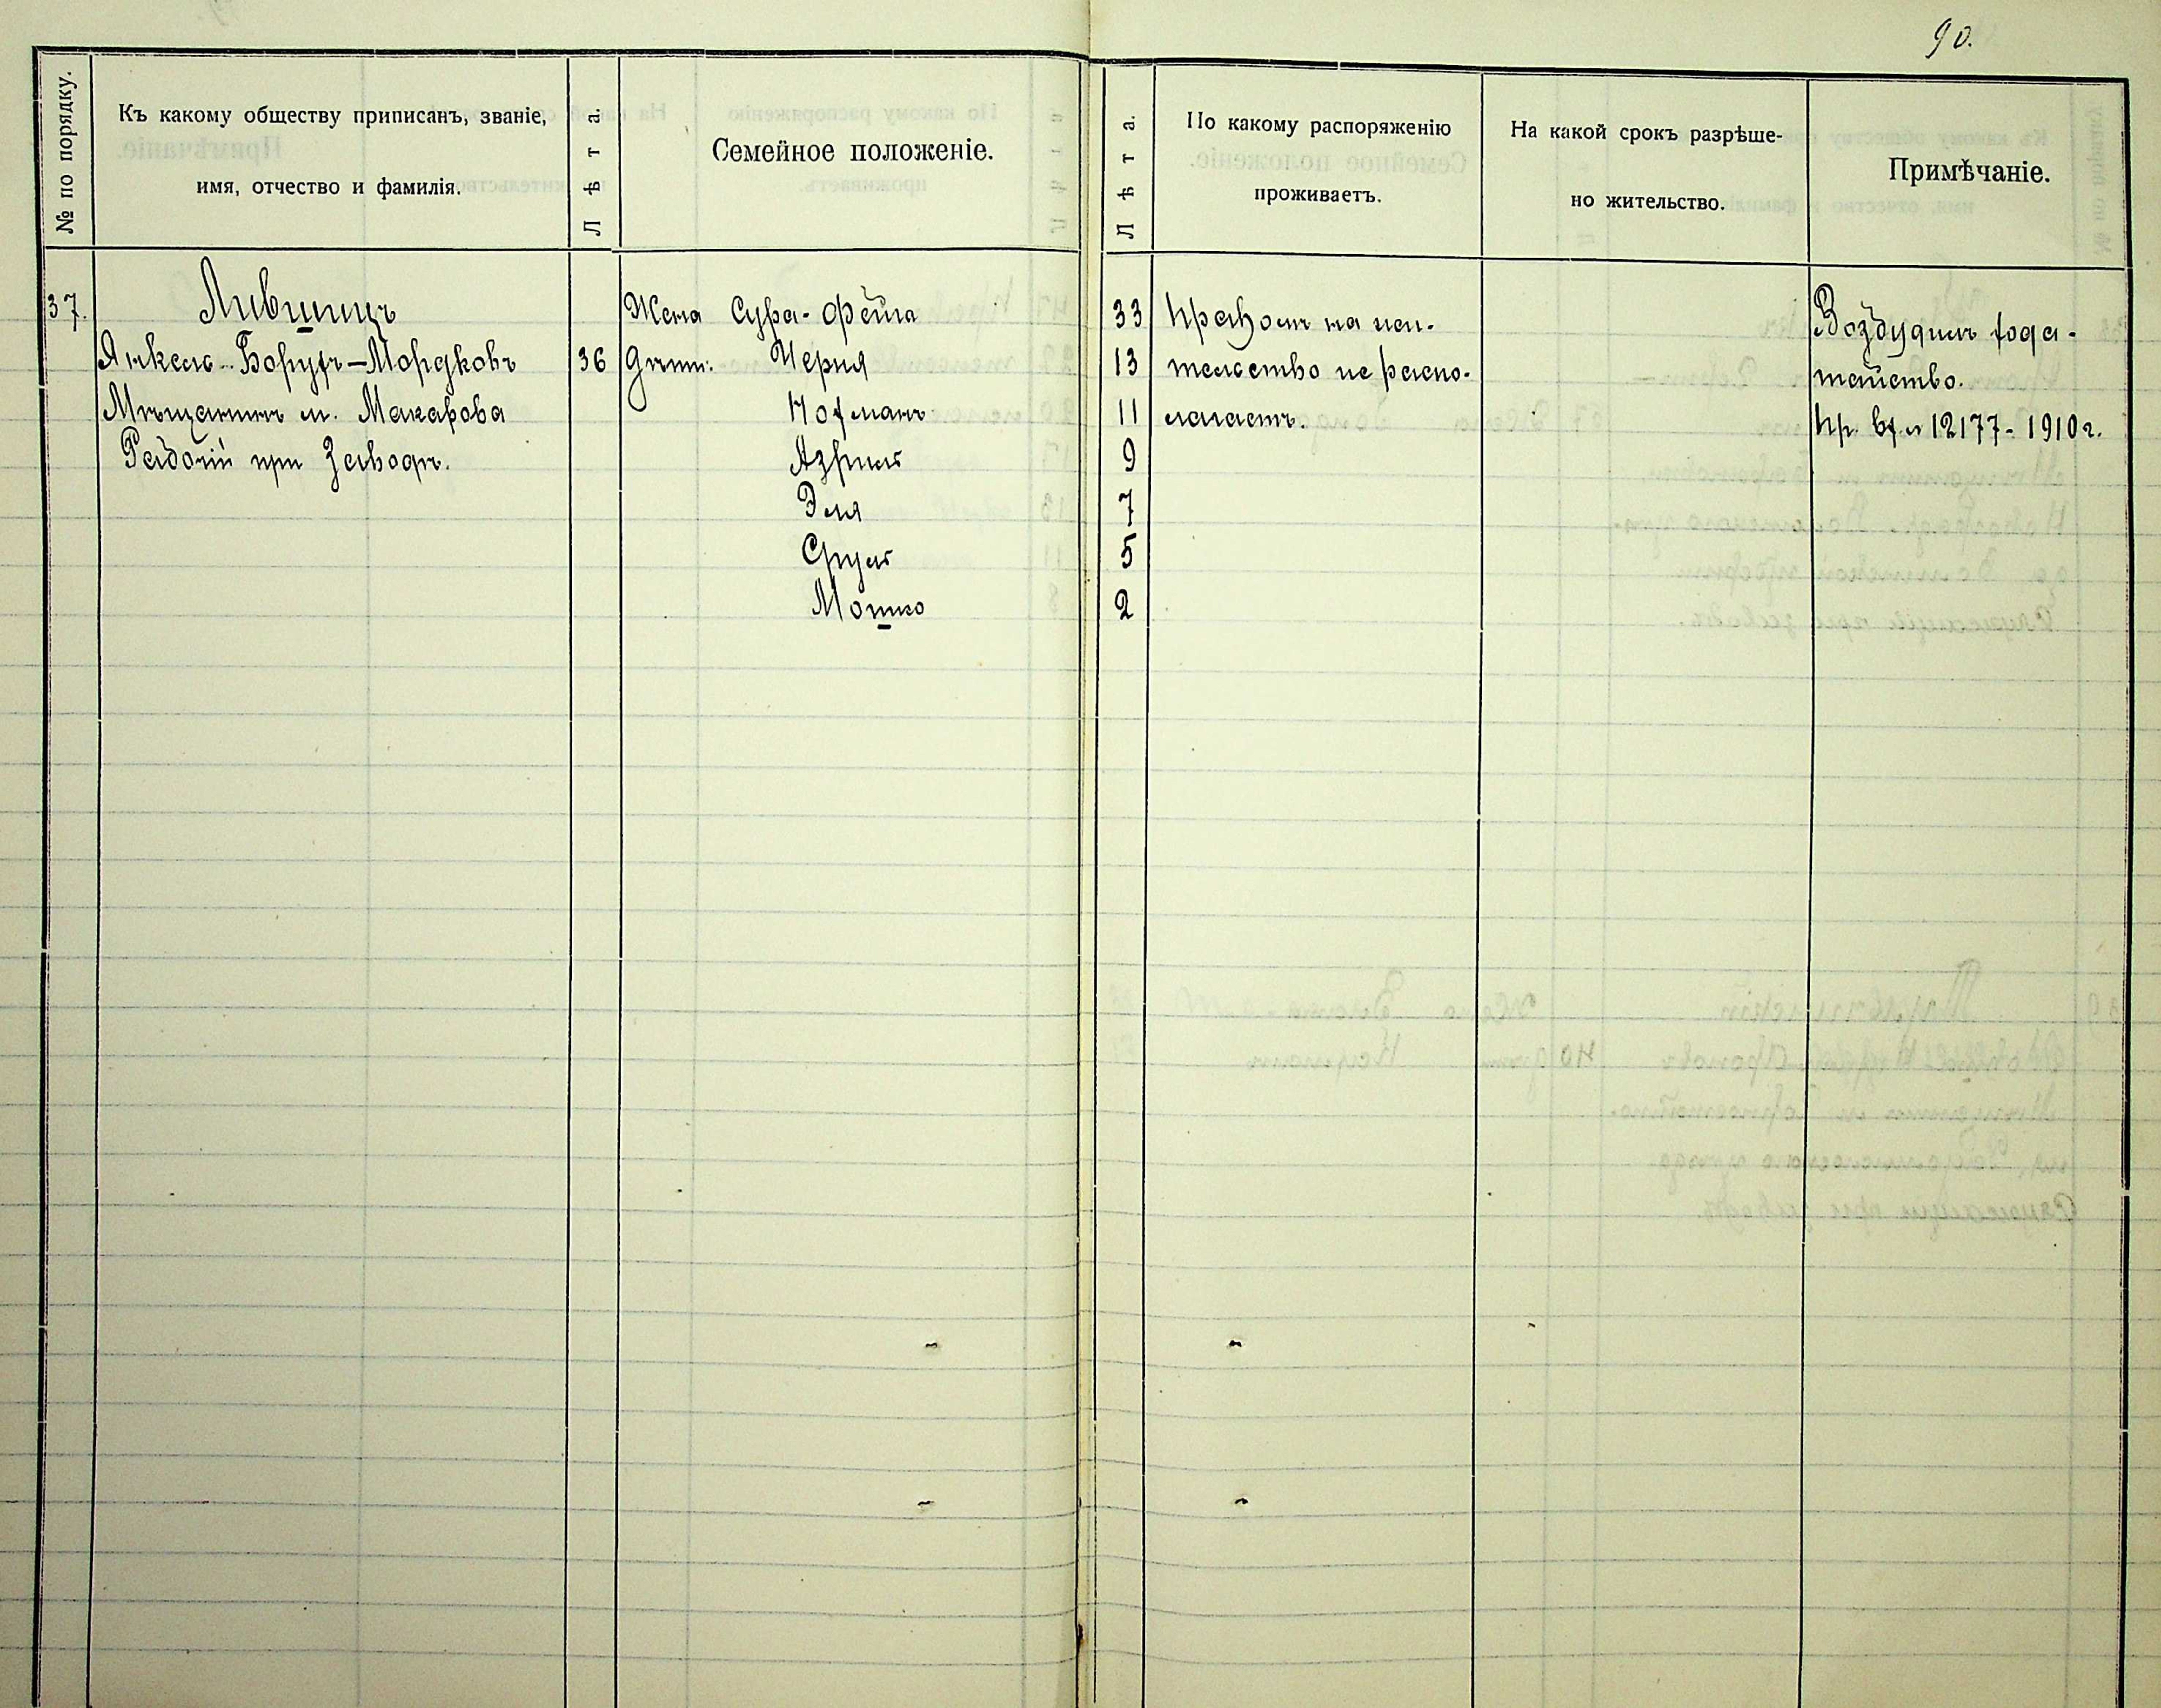 90.
№ по порядку.
Къ какому обществу приписанъ, званіе,
имя, отчество и фамилія.
Лѣта.
Семейное положеніе.
Лѣта.
По какому распоряженію
проживаетъ.
На какой срокъ разрѣше-
но жительство.
Примѣчаніе.
37.
Лившицъ
Янкель-Борухъ-Мордковъ
Мѣщанинъ м. Макарова
Рабочій при Заводѣ.
36
Жена Сура-Фейга
Дѣти: Черня
Нохманъ
Азріил
Эля
Сруль
Мошко
33
13
11
9
7
5
2
Правомъ на жи-
тельство не распо-
лагаетъ.
Возбудилъ хода-
тайство.
Пр. вх. № 12177-1910 г.